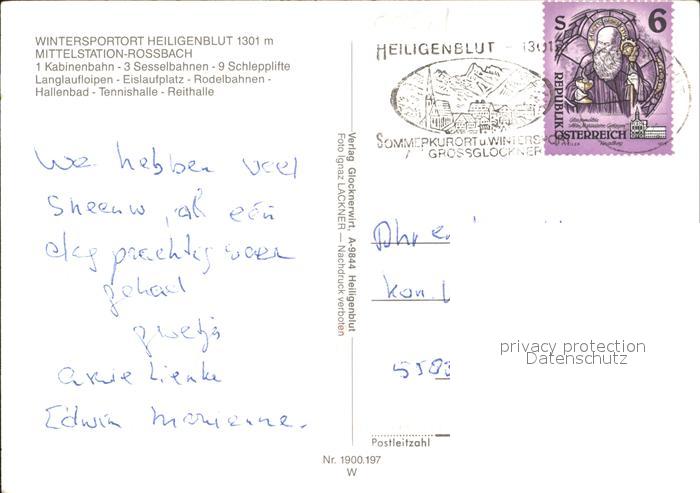 WINTERSPORTORT HEILIGENBLUT 1301 m
MITTELSTATION-ROSSBACH
1 Kabinenbahn - 3 Sesselbahnen - 9 Schlepplifte
Langlaufloipen - Eislaufplatz - Rodelbahnen -
Hallenbad - Tennishalle - Reithalle
We hebben veel
Sneeuw, al één
dag prachtig weer
gehad
groetjes
Edwin Marianne.
Verlag Glocknerwirt, A-9844 Heiligenblut
Foto Ignaz LACKNER — Nachdruck verboten
Nr. 1900.197
W
HEILIGENBLUT - 1301
SOMMERKURORT u. WINTERSPO
GROSSGLOCKNER
S 6
REPUBLIK
ÖSTERREICH
Kon.
558
Postleitzahl
privacy protection
Datenschutz